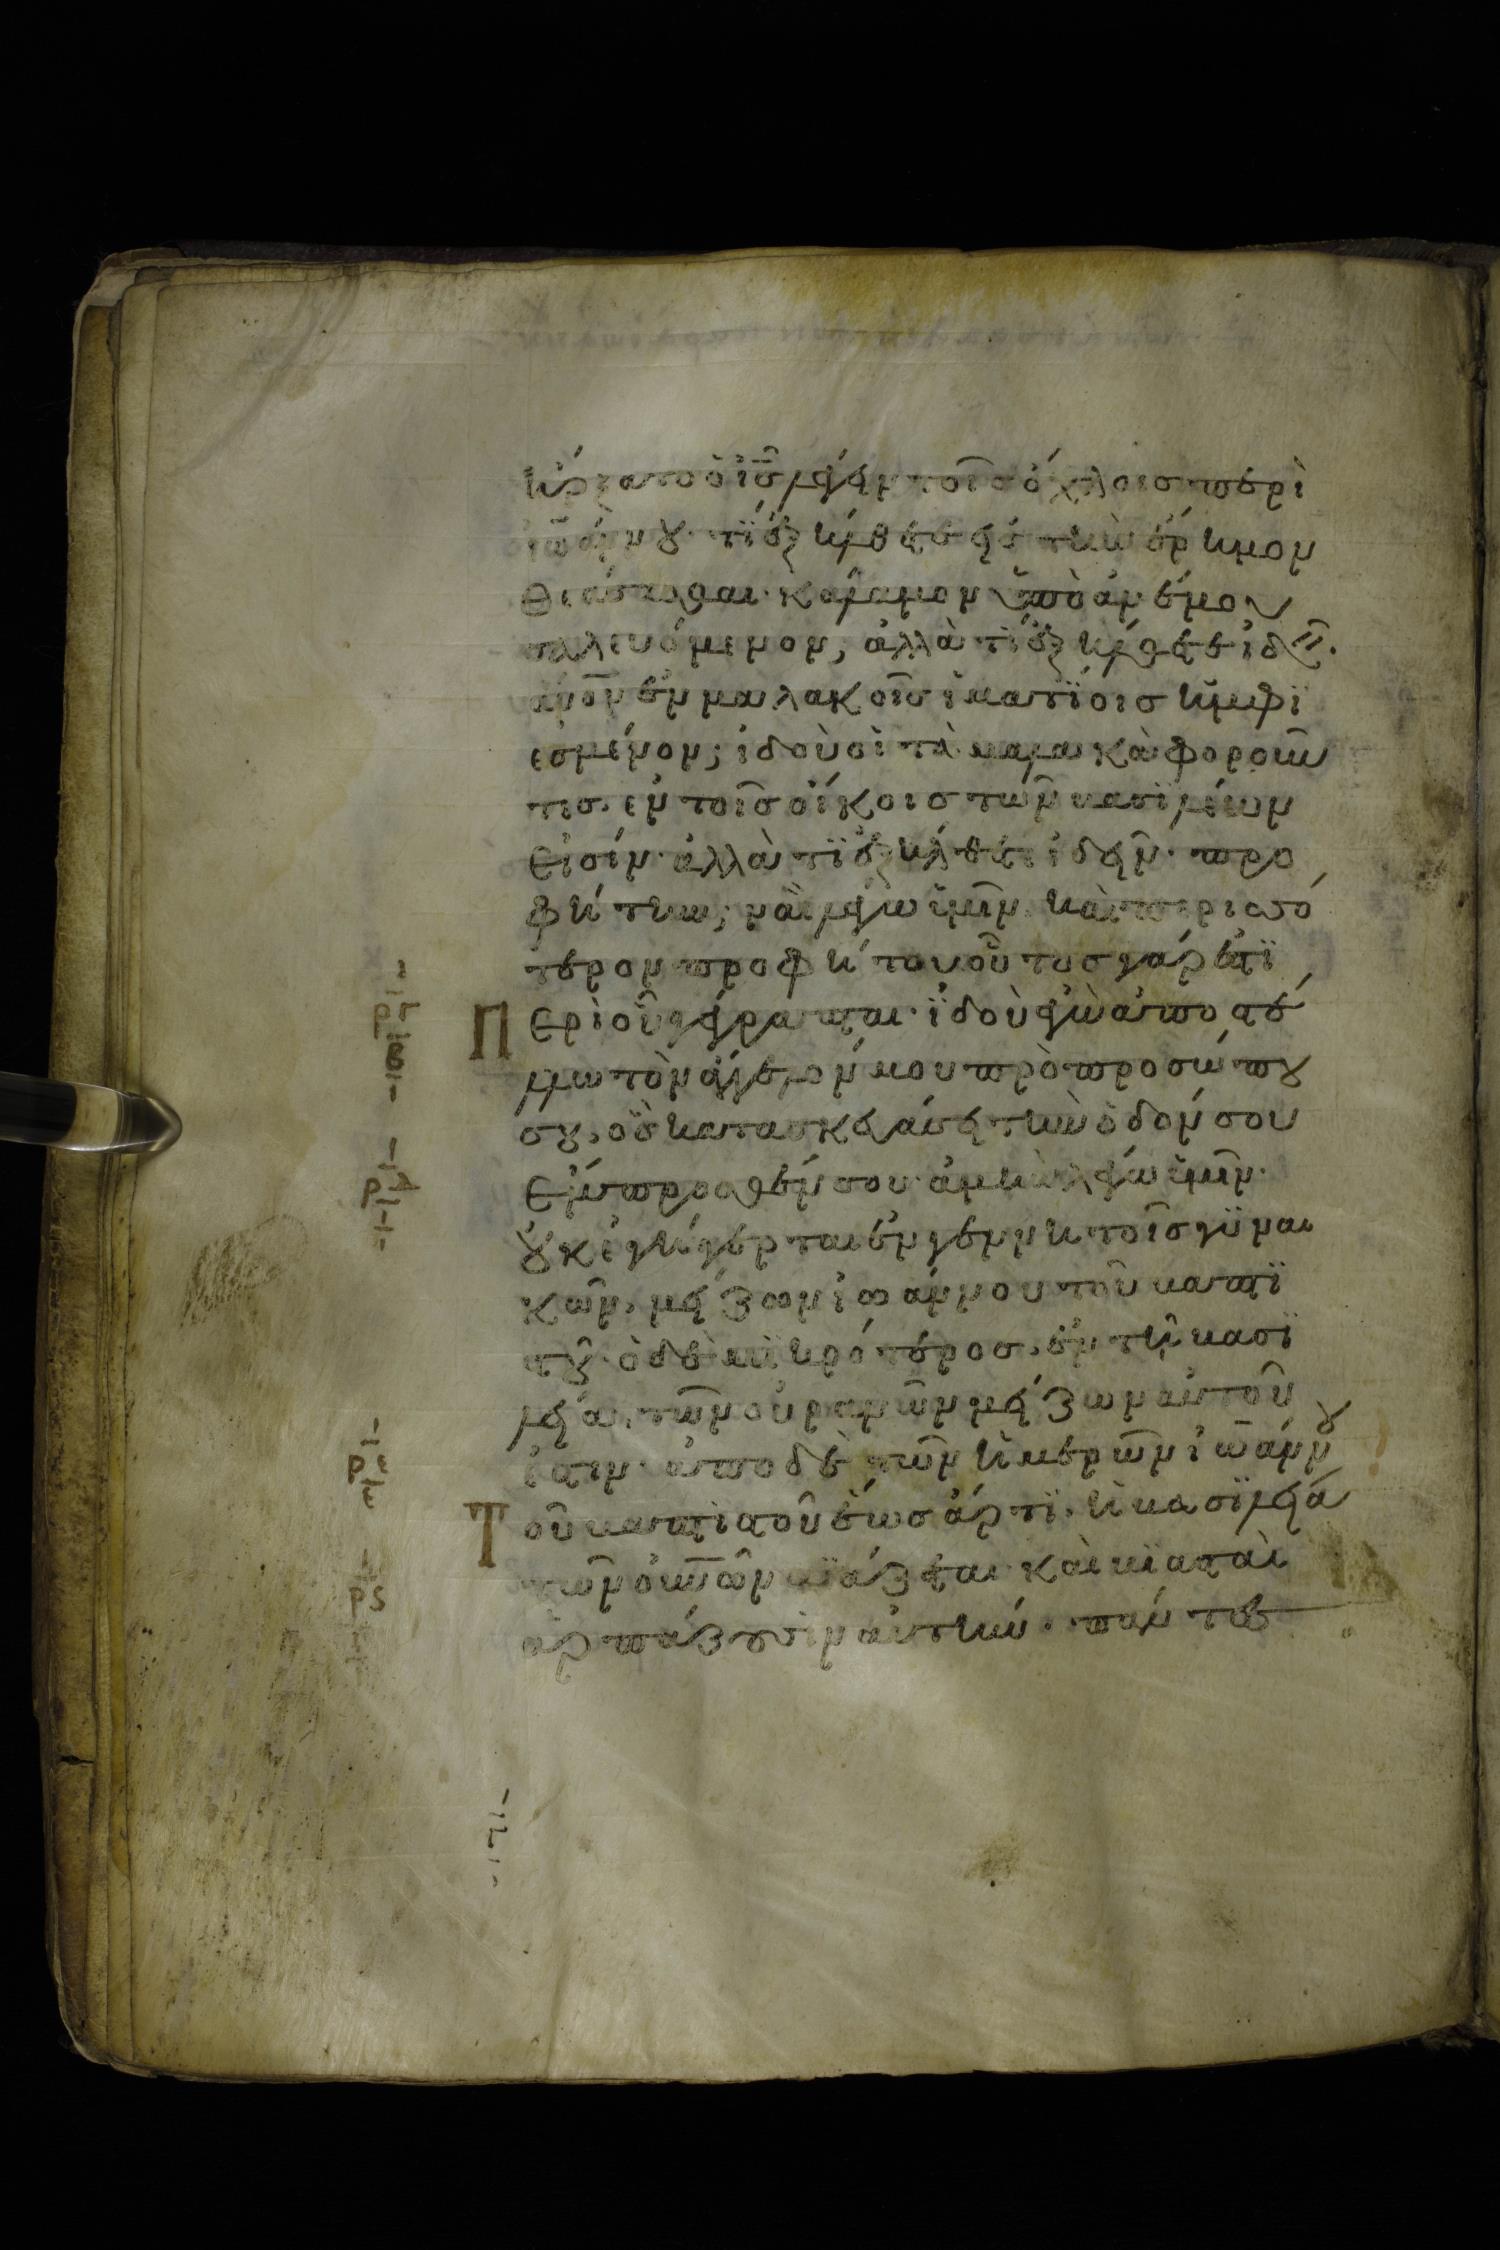 ἤρξατο ὁ ις̅ λέγειν τοῖς ὄχλοις περὶ
ιω̅άννου· τί ἐξήλθετε εἰς τὴν ἔρημον
θεάσασθαι· κάλαμον ὑπὸ ἀνέμου
σαλευόμενον; ἀλλὰ τί ἐξήλθετε ἰδεῖν·
ανο̅ν ἐν μαλακοῖς ἱματίοις ἠμφι
εσμένον; ἰδοὺ οἱ τὰ μαλακὰ φοροῦν
τες· ἐν τοῖς οἴκοις τῶν βασιλέων
εἰσίν· ἀλλὰ τί ἐξήλθετε ἰδεῖν· προ
φήτην; ναὶ λέγω ὑμῖν καὶ περισσό
τερον προφήτου οὗτος γάρ ἐστι
Περὶ οὗ γέγραπται· ἰδοὺ ἐγὼ ἀποστέ
λλω τὸν ἄγγελόν μου πρὸ προσώπου
σου· ὃς κατασκευάσει τὴν ὁδόν σου
ἔμπροσθέν σου· ἀμὴν λέγω ὑμῖν·
οὐκ ἐγήγερται ἐν γεννητοῖς γυναι
κῶν· μείζων ἰωάννου τοῦ βαπτι
στοῦ· ὁ δὲ μικρότερος· ἐν τῇ βασι
λείᾳ τῶν οὐρανῶν μείζων αὐτοῦ
ἐστιν· ἀπὸ δὲ τῶν ἡμερῶν ἰω̅άννου
Τοῦ βαπτιστοῦ ἕως ἄρτι· ἡ βασιλεία
τῶν οὐνω̅ν βιάζεται· καὶ βιασταὶ
ἁρπάζουσιν αὐτήν· πάντες
ργ
β
ρδ
ρε
ε
ρς